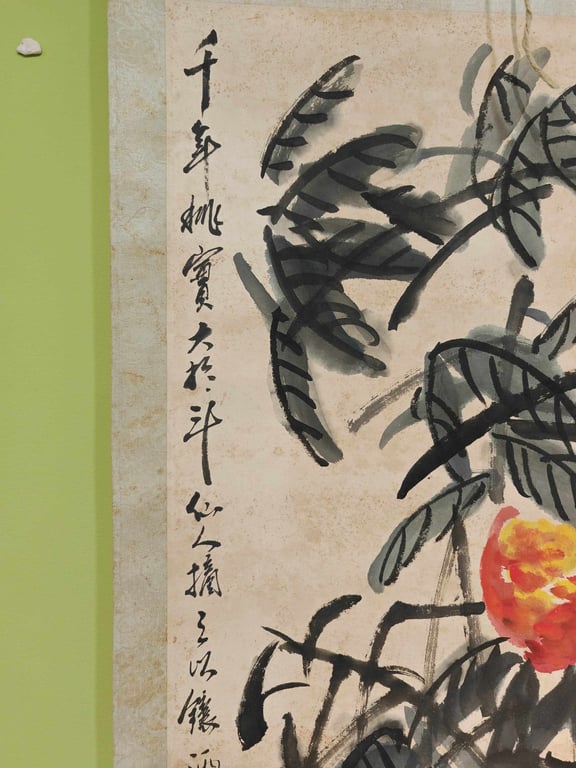 千年桃實大於斗仙人摘之以釀酒